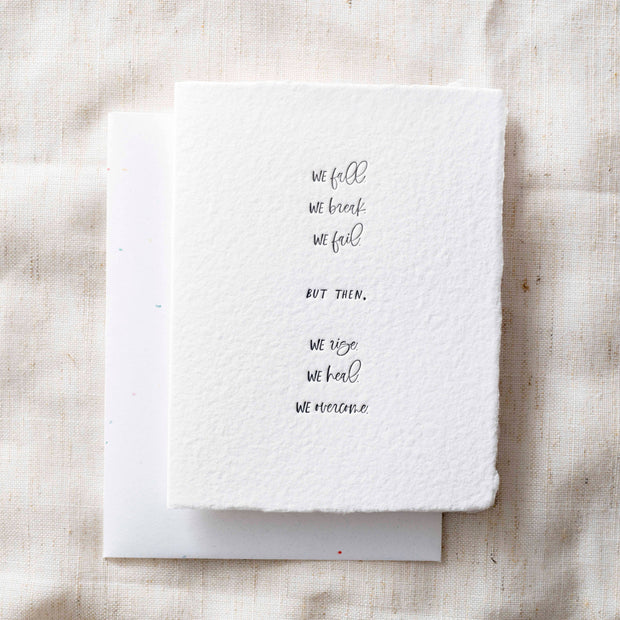 WE fall.
WE break.
WE fail.
BUT THEN.
WE rise.
WE heal.
WE overcome.